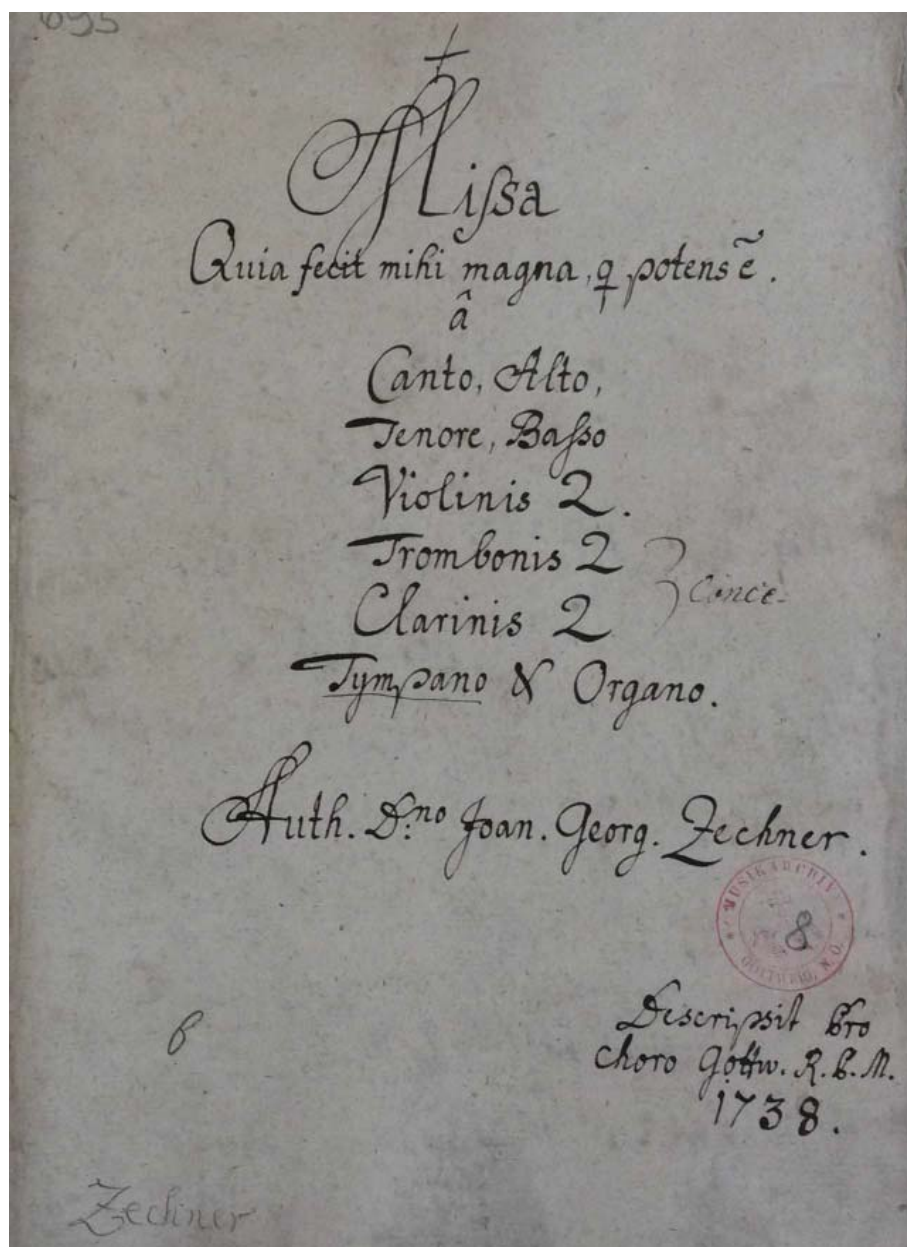 695
Missa
Quia fecit mihi magna, q potens ē.
â
Canto, Alto,
Tenore, Basso
Violinis 2.
Trombonis 2
Conce-
Clarinis 2
Tympano & Organo.
Auth. D:no Joan. Georg. Zechner.
MUSIKARCHIV
8
GÖTTWEIG, N.Ö.
Descripsit pro
Choro Gottw. R. P. M.
1738.
Zechner